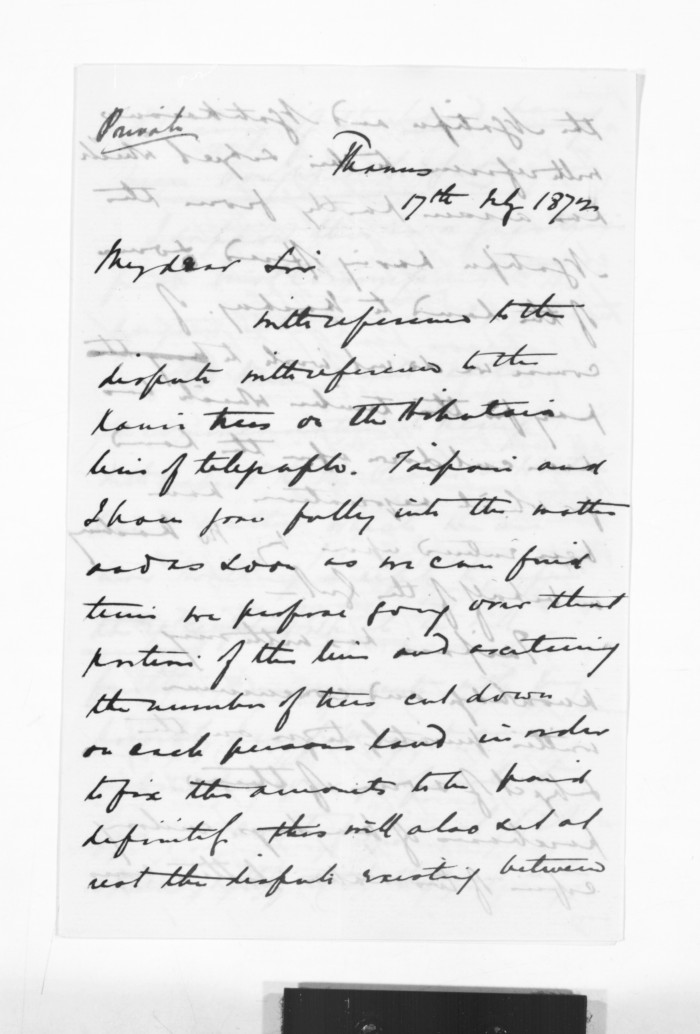 Private
Thames
17th July 1872
My dear Sir
with reference to the
dispute with reference to the
Kauri trees on the Hikutaia
line of telegraph. Taipari and
I have gone fully into the matter
and as soon as we can find
time we propose going over that
portion of the line and ascertaining
the number of trees cut down
on each persons land in order
to fix the amounts to be paid
definitely this will also set at
rest the dispute existing between